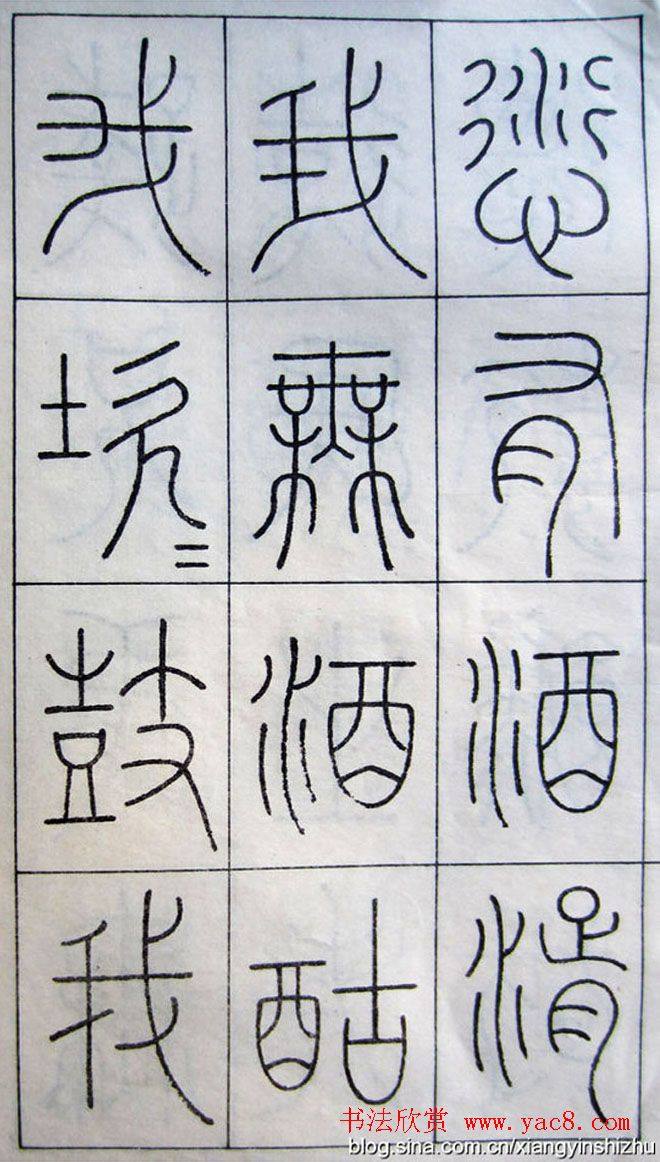 愆有酒湑
我無酒酤
我坎=鼓我
书法欣赏 www.yac8.com
blog.sina.com.cn/xiangyinshizhu